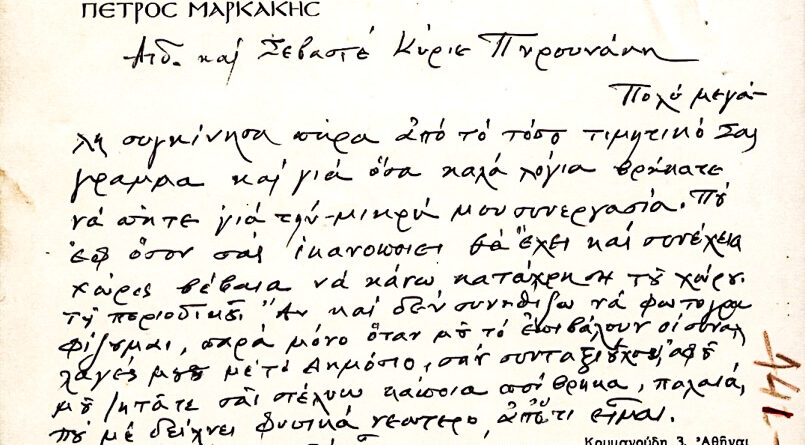 ΠΕΤΡΟΣ ΜΑΡΚΑΚΗΣ
Αιδ. καί Σεβαστέ Κύριε Πυρουνάκη
Πολύ μεγά-
λη συγκίνησα πῆρα ἀπό τό τόσο τιμητικό Σας
γραμμα καί γιά ὅσα καλά λόγια βρήκατε
νά πῆτε γιά τήν μικρή μου συνεργασία. Πού
ἐφ ὅσον σᾶς ἱκανοποιεῖ θά ἔχει καί συνέχεια
χωρίς βέβαια νά κάνω κατάχρηση τοῦ χώρου
τοῦ περιοδικοῦ. Ἄν καί δέν συνηθίζω νά φωτογρα
φίζομαι, παρά μόνο ὅταν μοῦ τό ἐπιβάλουν οἱ συναλ
λαγές μου μέ τό Δημόσιο, σάν συνταξιοῦχος, ἀφοῦ
μοῦ ζητᾶτε σᾶς στέλνω κάποια πού βρῆκα, παλαιά,
πού μέ δείχνει φυσικά νεώτερο, ἀπ' ὅτι εἶμαι.
Κουμανούδη 3, Ἀθῆναι
741-